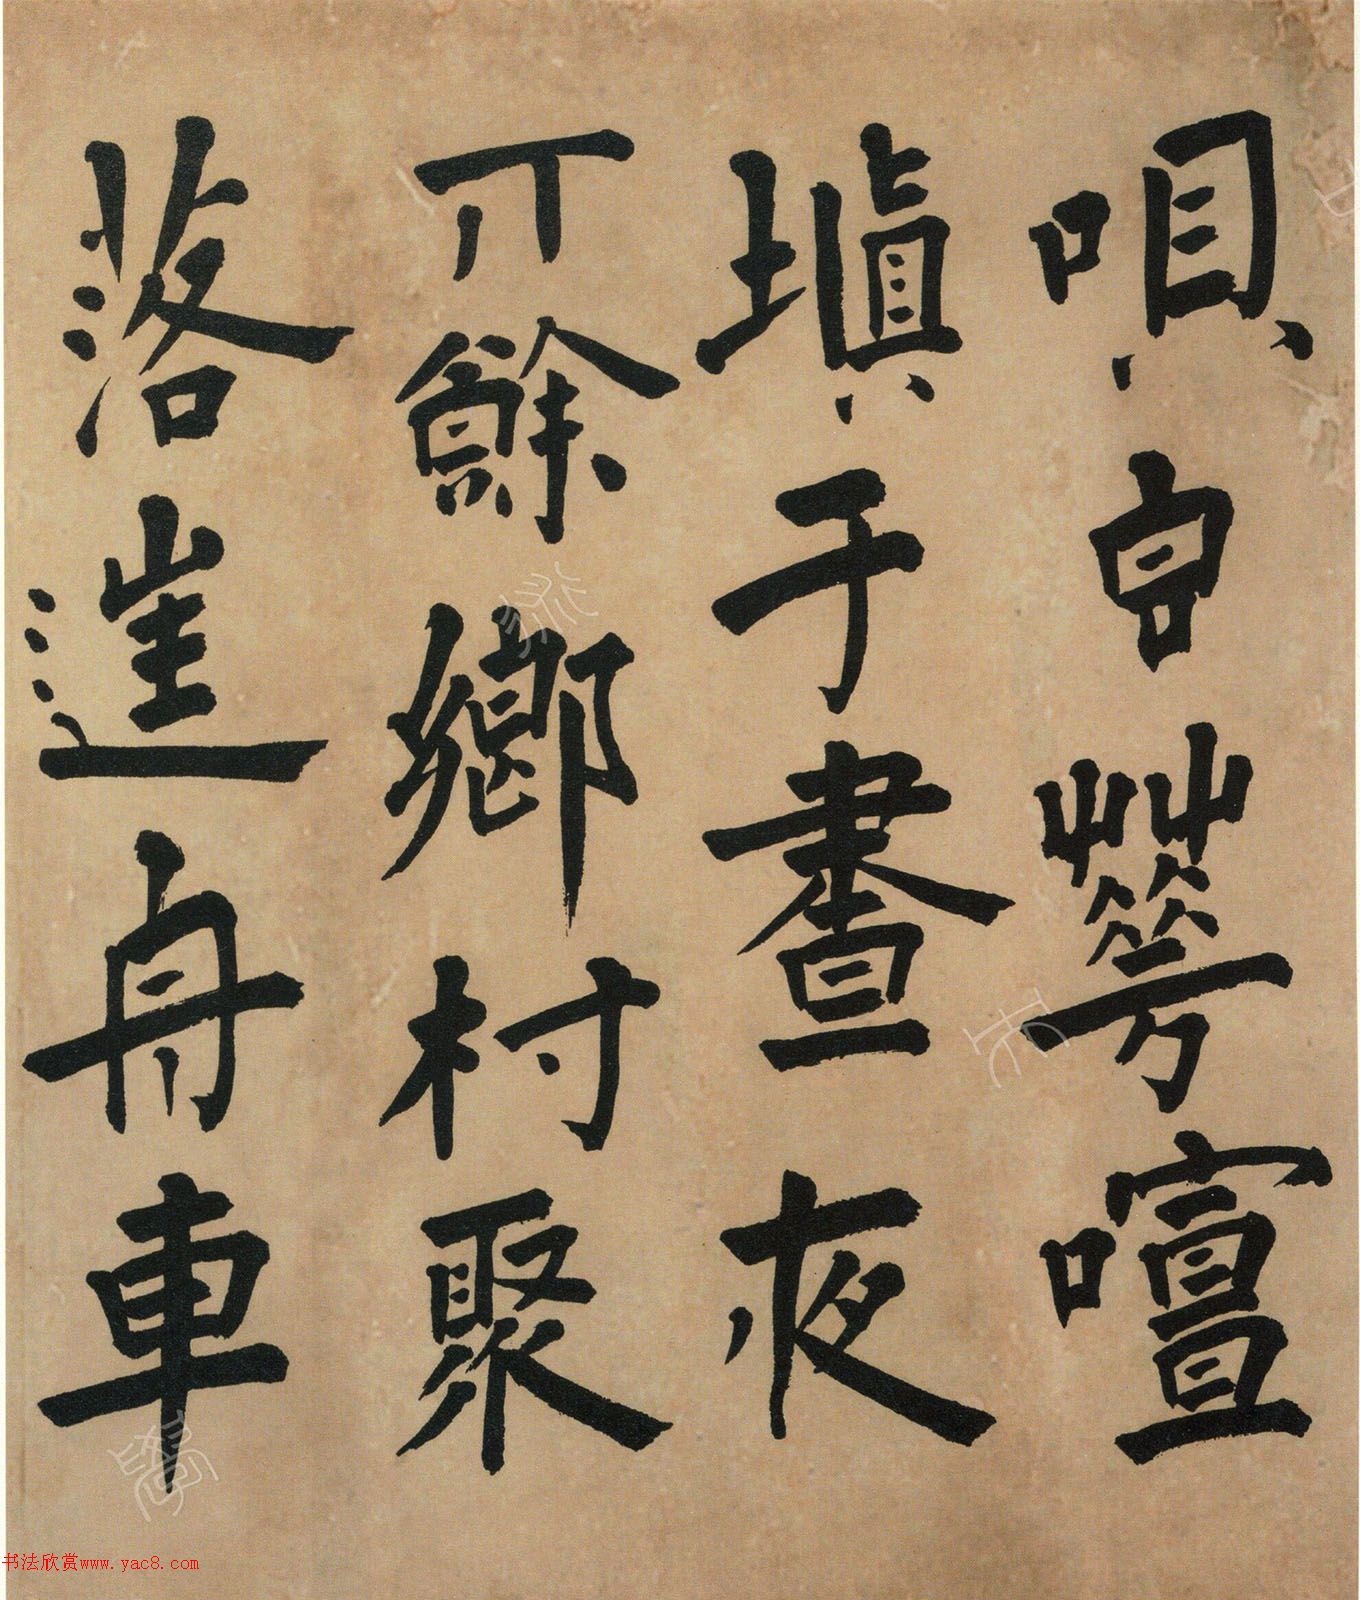 唄喧
填于晝夜
丌餘鄉村聚
落達舟車
书法欣赏www.yac8.com